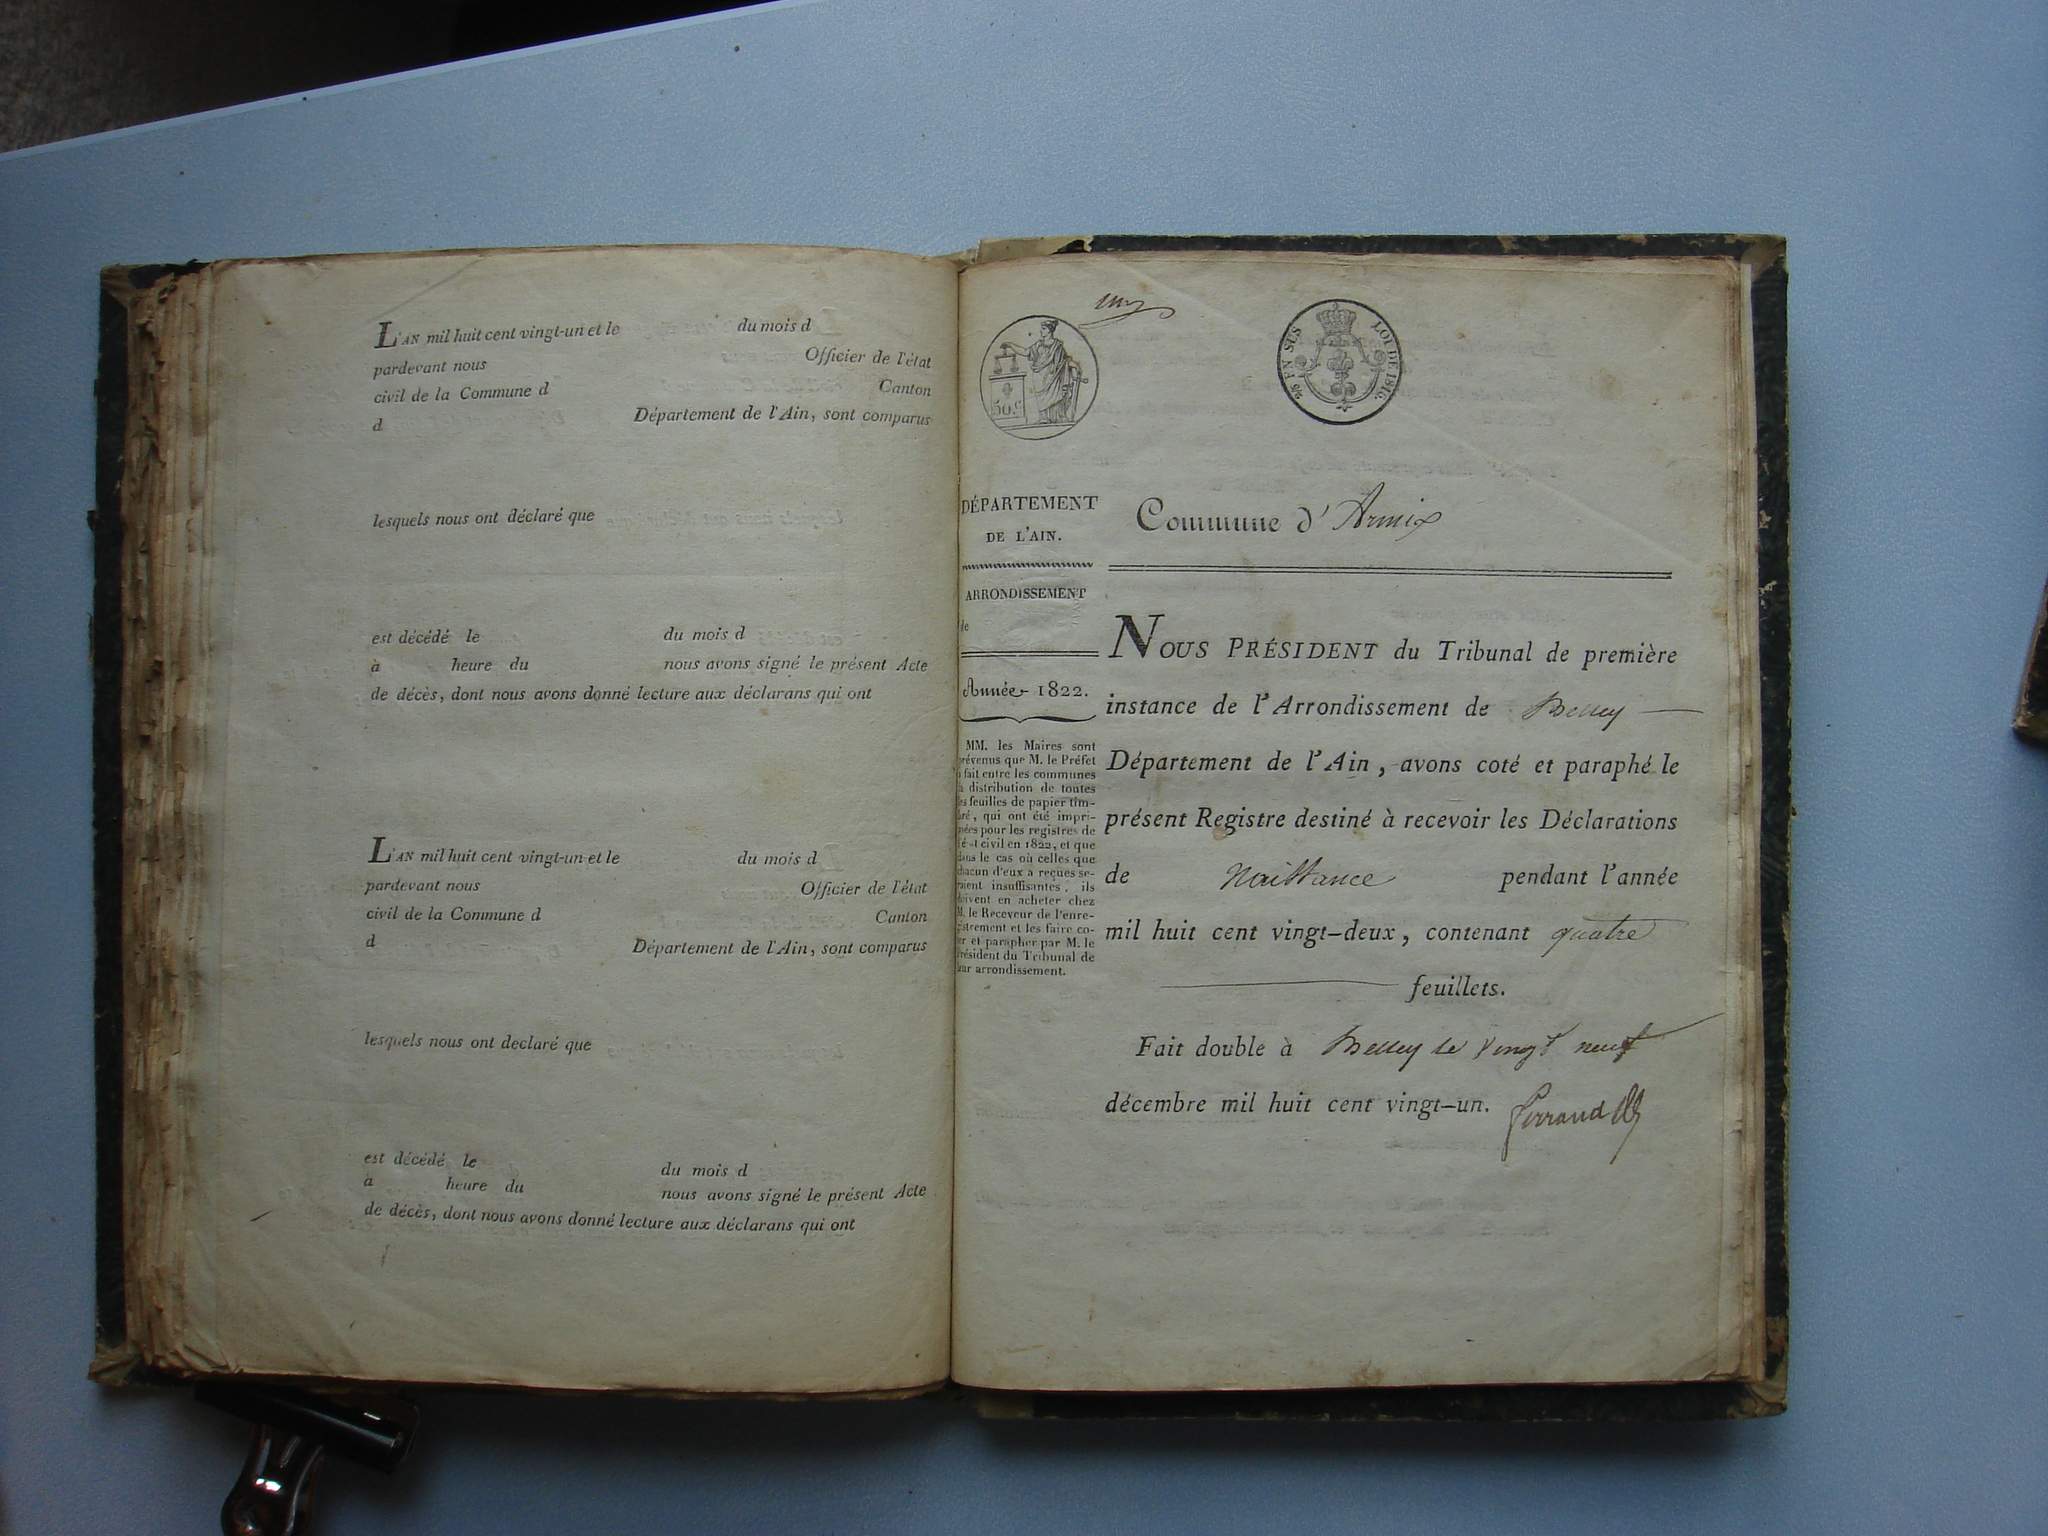 L'AN mil huit cent vingt-un et le du mois d
pardevant nous Officier de l'état
civil de la Commune d Canton
d Département de l'Ain, sont comparus
lesquels nous ont déclaré que
est décédé le du mois d
à heure du nous avons signé le présent Acte
de décès, dont nous avons donné lecture aux déclarans qui ont
L'AN mil huit cent vingt-un et le du mois d
pardevant nous Officier de l'état
civil de la Commune d Canton
d Département de l'Ain, sont comparus
lesquels nous ont declaré que
est décédé le du mois d
à heure du nous avons signé le présent Acte
de décès, dont nous avons donné lecture aux déclarans qui ont
50 c
EN SUS
LOI DE 1816.
DÉPARTEMENT
DE L'AIN.
ARRONDISSEMENT
de
Année 1822.
MM. les Maires sont
prévenus que M. le Préfet
a fait entre les communes
la distribution de toutes
les feuilles de papier tim-
bré, qui ont été impri-
mées pour les registres de
l'état civil en 1822, et que
dans le cas où celles que
chacun d'eux a reçues se-
raient insuffisantes, ils
doivent en acheter chez
M. le Receveur de l'enre-
gistrement et les faire co-
ter et parapher par M. le
Président du Tribunal de
leur arrondissement.
Commune d'Armix
NOUS PRÉSIDENT du Tribunal de première
instance de l'Arrondissement de Belley
Département de l'Ain, avons coté et paraphé le
présent Registre destiné à recevoir les Déclarations
de Naissance pendant l'année
mil huit cent vingt-deux, contenant quatre
feuillets.
Fait double à Belley le vingt neuf
décembre mil huit cent vingt-un. Ferrand